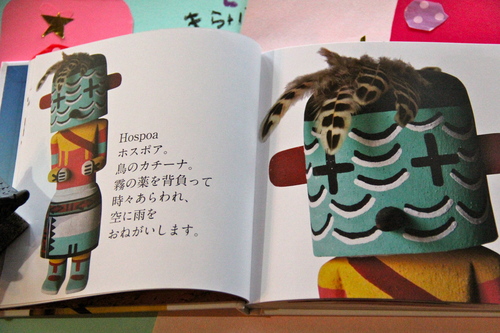 きらり
Hospoa
ホスポア。
鳥のカチーナ。
霧の薬を背負って
時々あらわれ、
空に雨を
おねがいします。